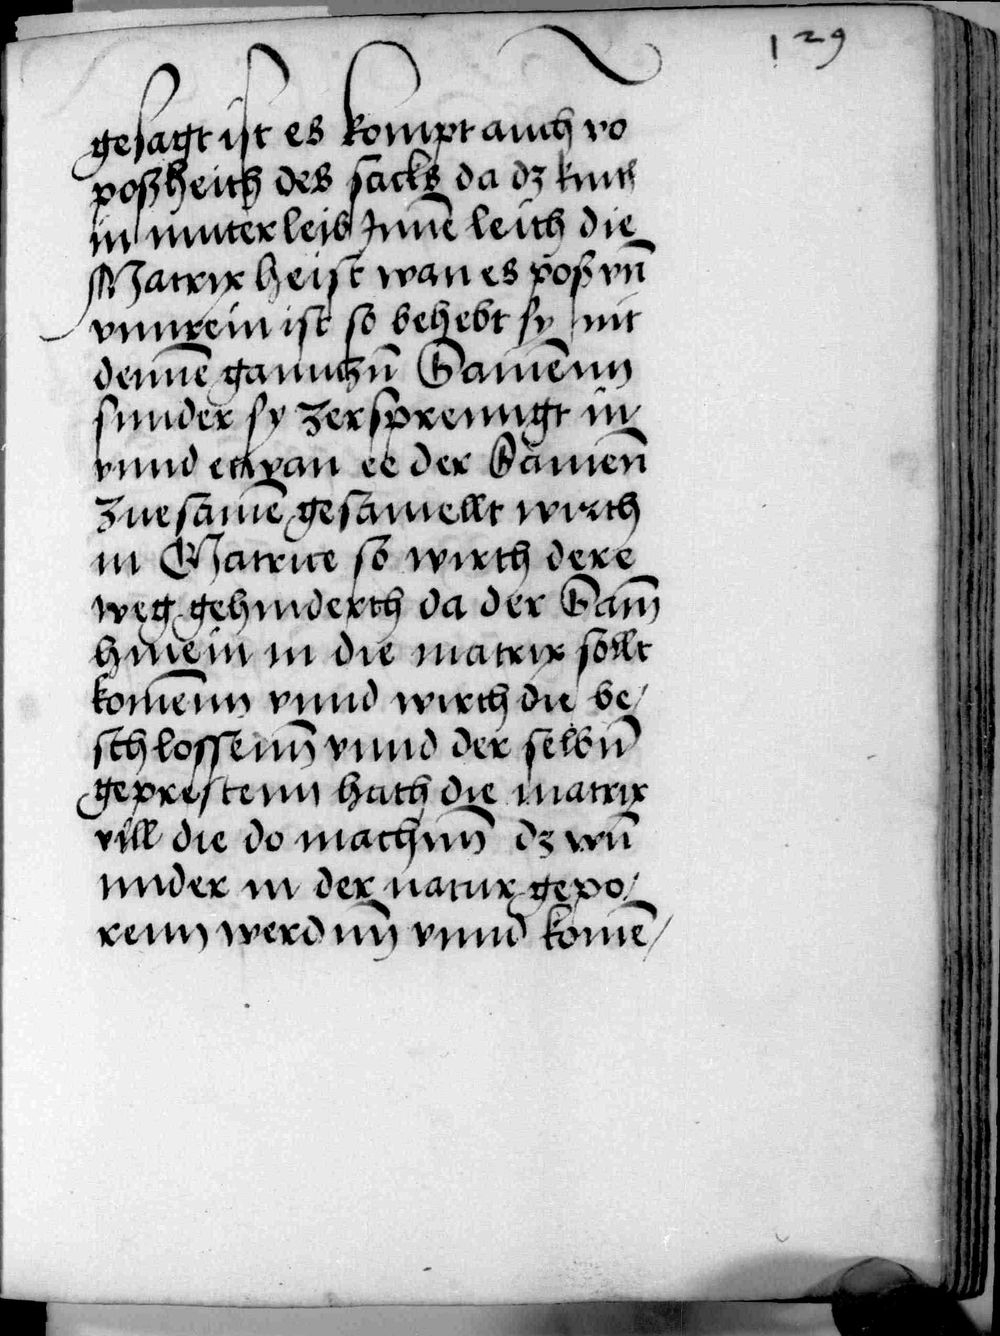 129
gesagt ist es kompt auch vo
poßheith des sacks da dz kinth
in muterleib Innē leith die
Matrix heist wan es poß vn̄
vnnrein ist so behebt sy nit
dennē ganntzn̄ Samēnn
sunder sy zersprenngt in
vnnd etwan ee der Samen̄
zuesamē gesamellt wirth
in Matrice so wirth dere
weg gehinderth da der Sam̄
hinein in die matrix sollt
komēnn vnnd wirth die be/
schlossenn̄ vnnd der selbn̄
geprestenn hath die matrix
vill die do machnn̄ dz wū
nnder in der natur gepo/
renn werdnn̄ vnnd komē/